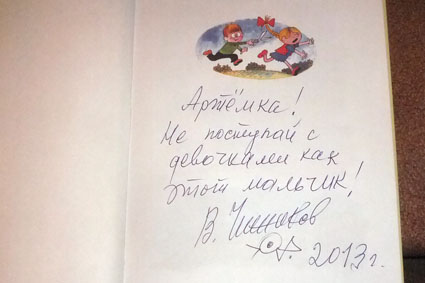 Артёмка!
Не поступай с
девочками как
этот мальчик!
В. Чижиков
2013г.